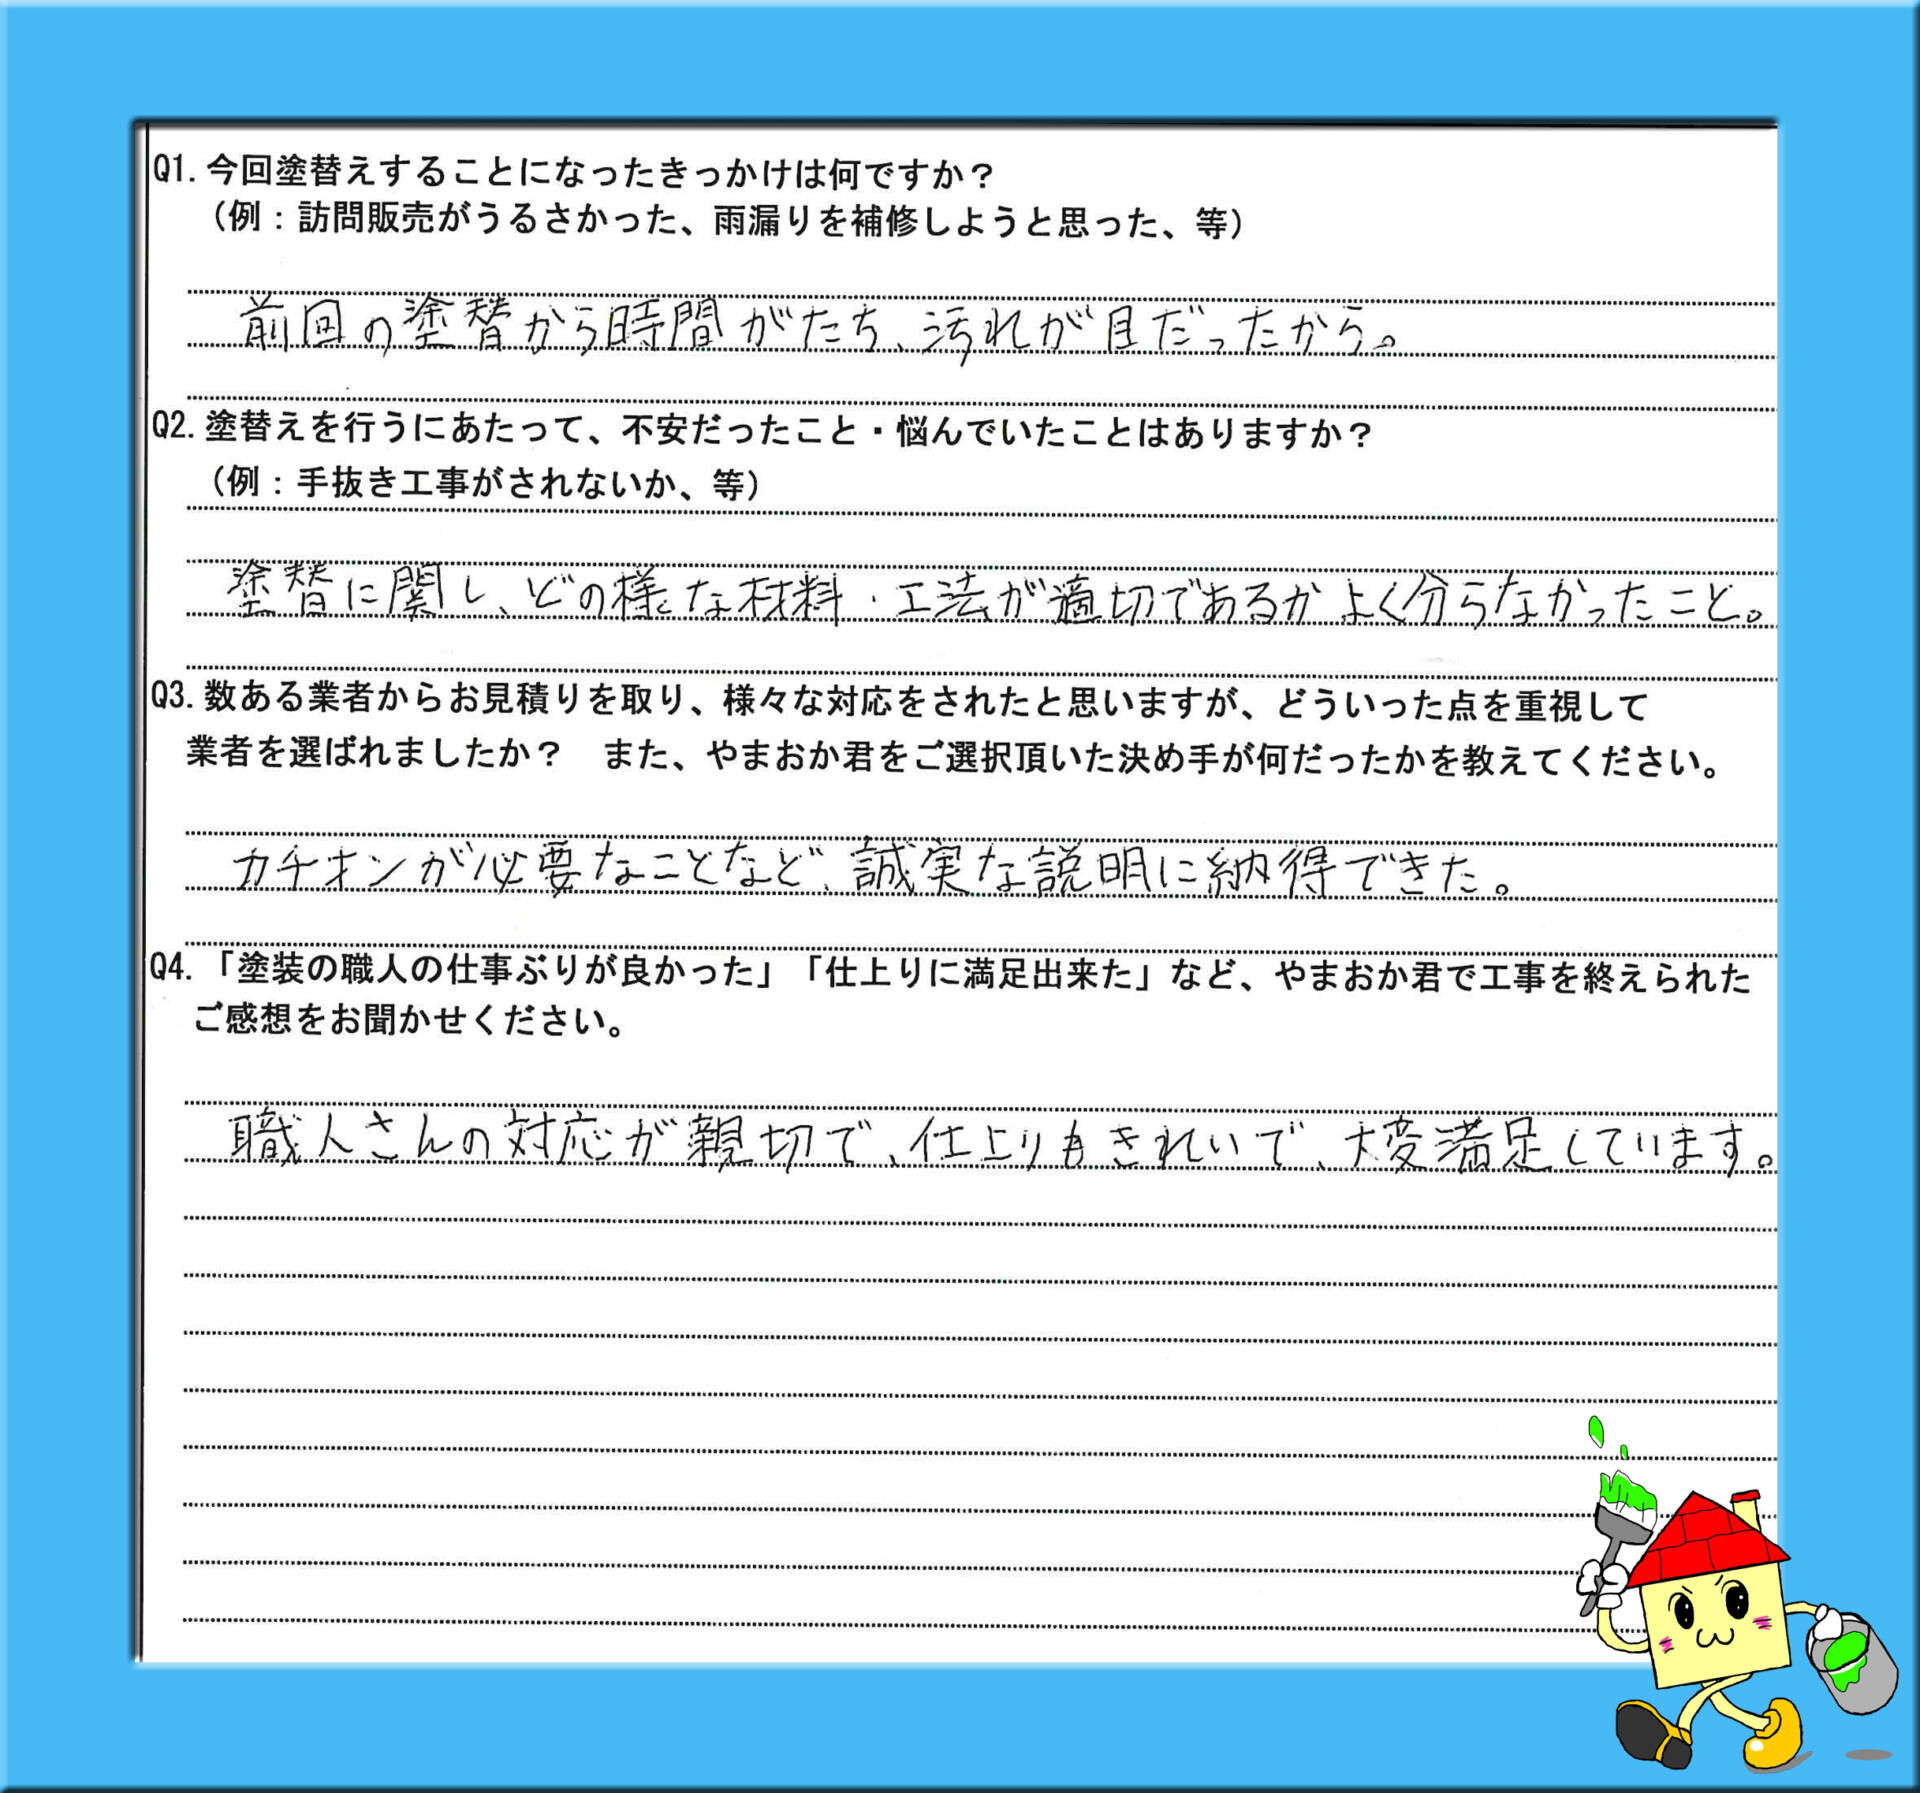 Q1. 今回塗替えすることになったきっかけは何ですか？
（例：訪問販売がうるさかった、雨漏りを補修しようと思った、等）
前回の塗替から時間がたち、汚れが目だったから。
Q2. 塗替えを行うにあたって、不安だったこと・悩んでいたことはありますか？
（例：手抜き工事がされないか、等）
塗替に関し、どの様な材料・工法が適切であるかよく分らなかったこと。
Q3. 数ある業者からお見積りを取り、様々な対応をされたと思いますが、どういった点を重視して
業者を選ばれましたか？　また、やまおか君をご選択頂いた決め手が何だったかを教えてください。
カチオンが必要なことなど、誠実な説明に納得できた。
Q4. 「塗装の職人の仕事ぶりが良かった」「仕上りに満足出来た」など、やまおか君で工事を終えられた
ご感想をお聞かせください。
職人さんの対応が親切で、仕上りもきれいで、大変満足しています。